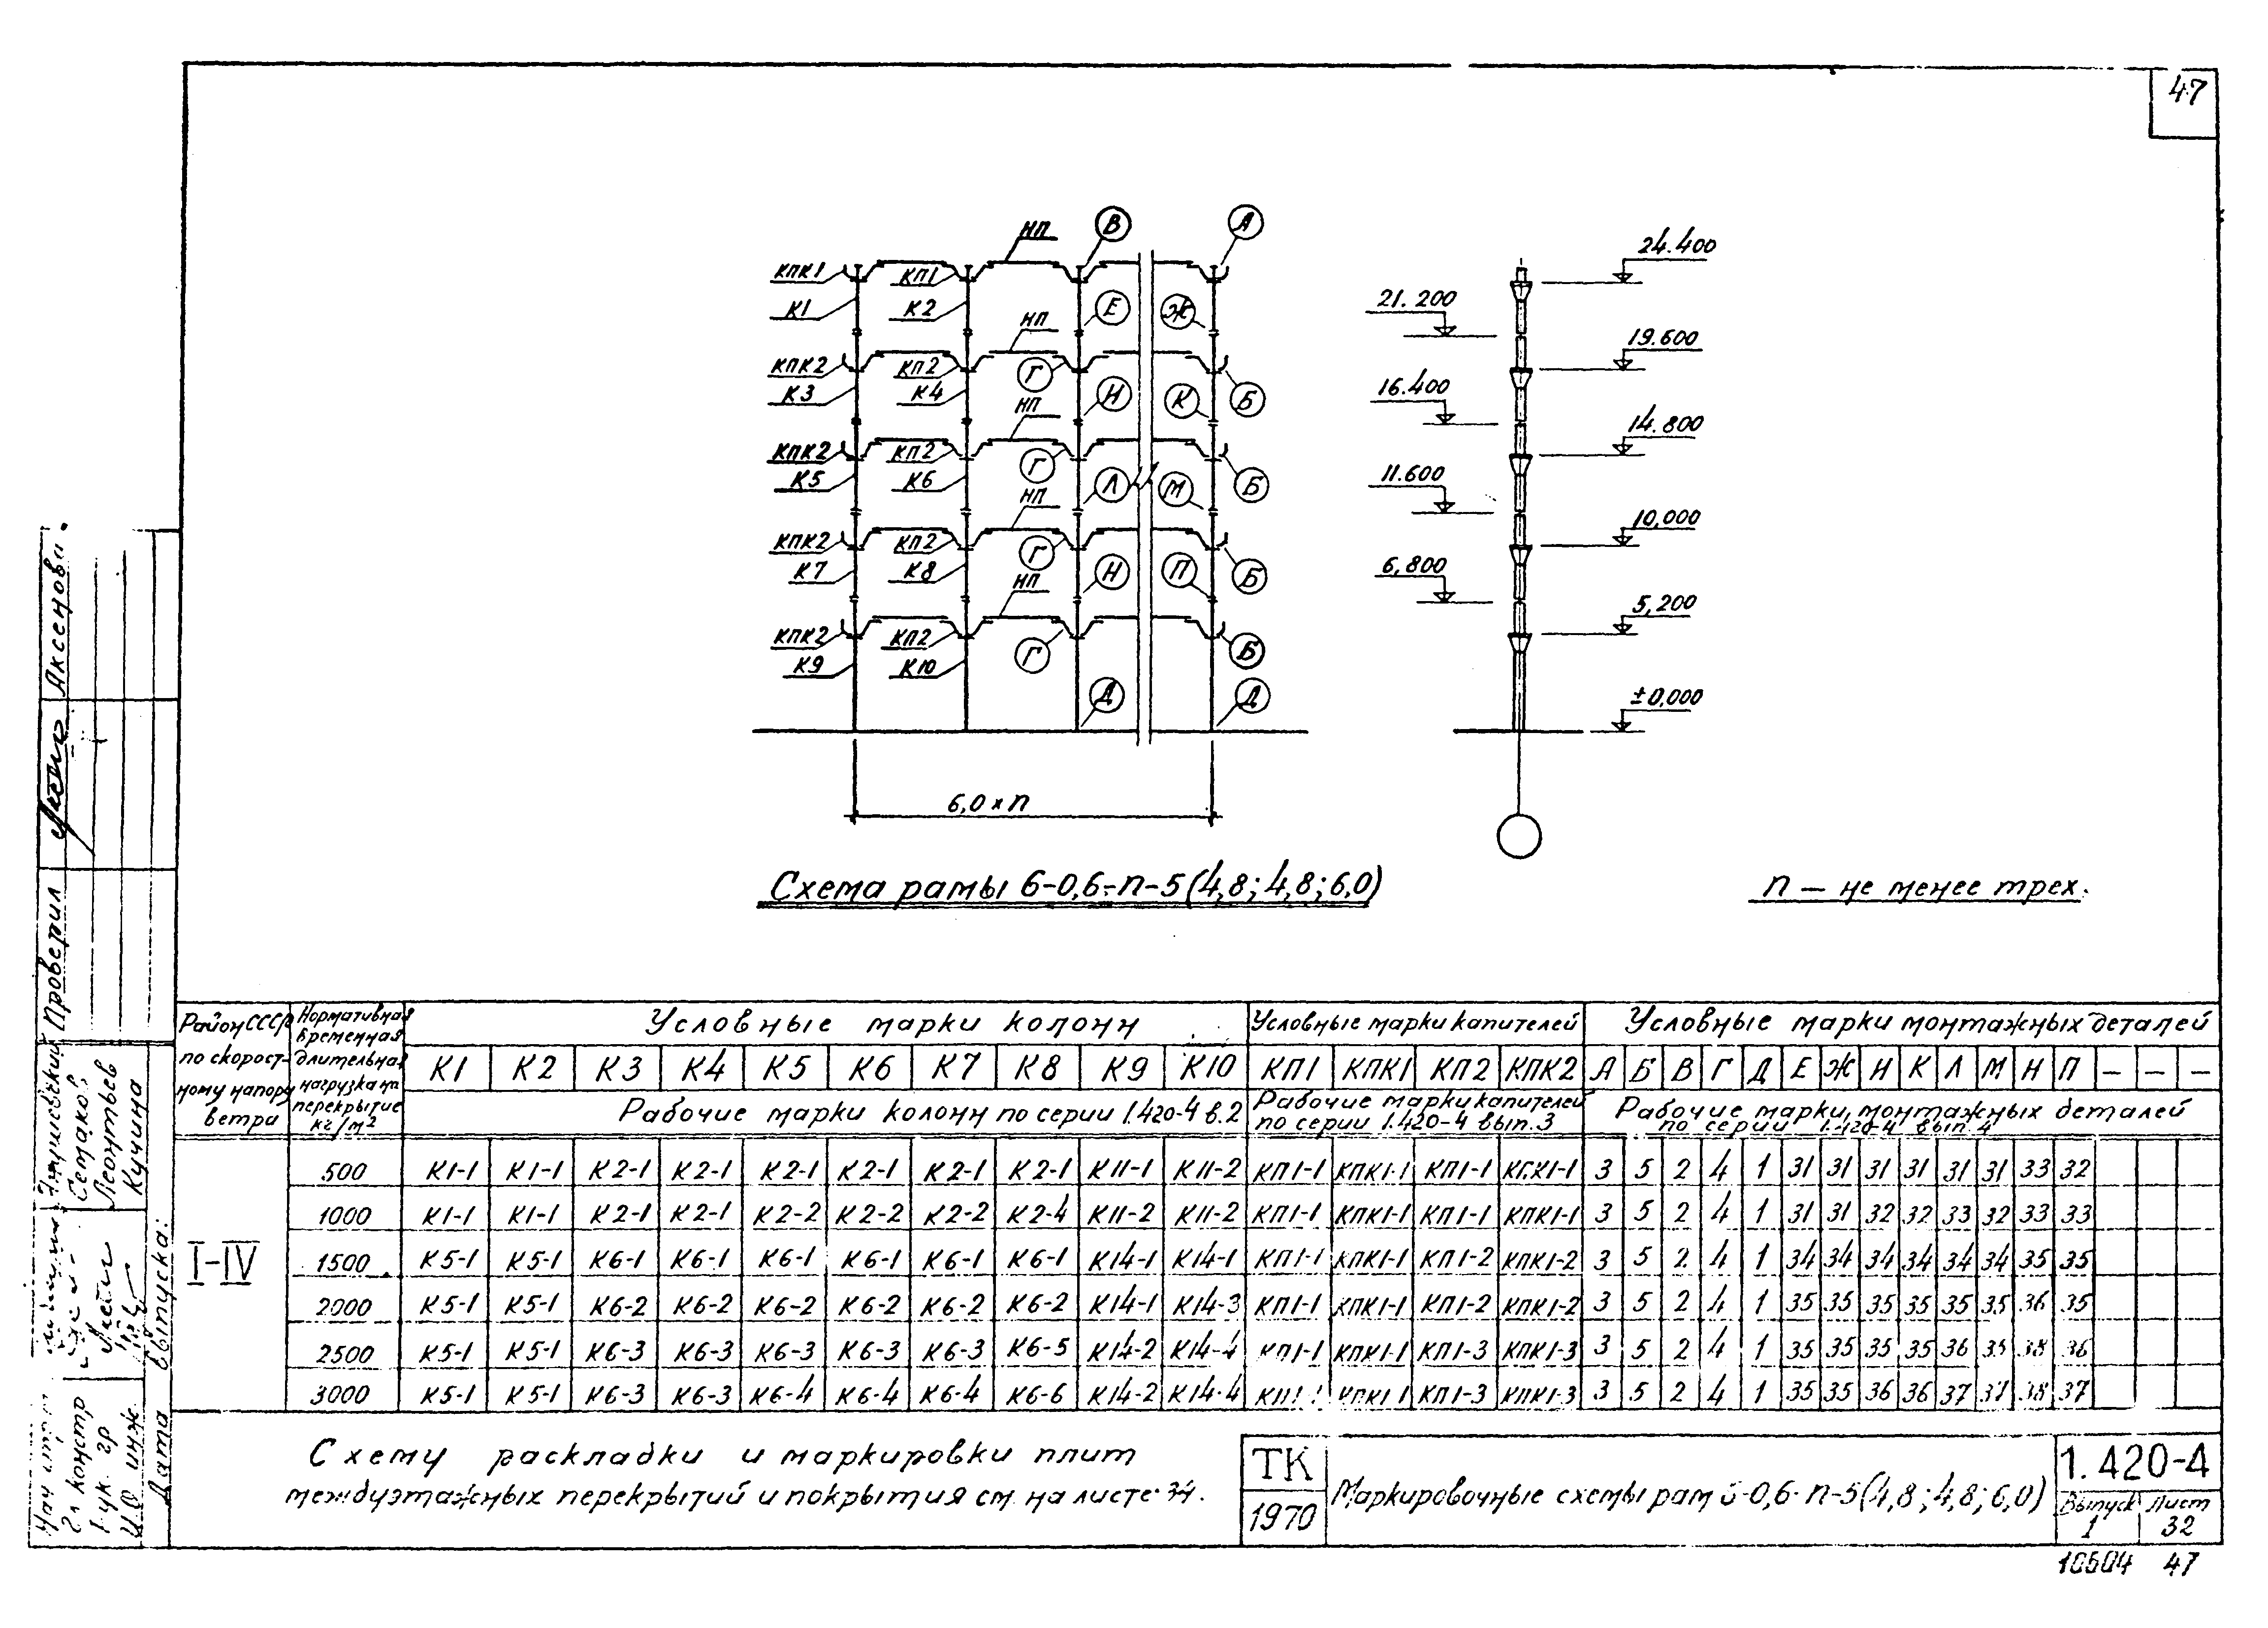 47
НП В А
КПК1 КП1
К1 К2 Е Ж
НП
КПК2 КП2 Г
К3 К4 И К Б
НП
КПК2 КП2 Г
К5 К6 Л М Б
НП
КПК2 КП2 Г
К7 К8 Н П Б
НП
КПК2 КП2 Г Б
К9 К10
Д Д
6,0×п
24.400
21.200
19.600
16.400
14.800
11.600
10,000
6,800
5,200
±0,000
Схема рамы 6-0,6-п-5(4,8;4,8;6,0)
п — не менее трех.
Район СССР по скоростному напору ветра
Нормативная временная длительная нагрузка на перекрытие кг/м2
Условные марки колонн
Условные марки капителей
Условные марки монтажных деталей
К1 К2 К3 К4 К5 К6 К7 К8 К9 К10 КП1 КПК1 КП2 КПК2 А Б В Г Д Е Ж И К Л М Н П — — —
Рабочие марки колонн по серии 1.420-4 в.2
Рабочие марки капителей по серии 1.420-4 вып.3
Рабочие марки монтажных деталей по серии 1.420-4 вып.4
I-IV
500 К1-1 К1-1 К2-1 К2-1 К2-1 К2-1 К2-1 К2-1 К11-1 К11-2 КП1-1 КПК1-1 КП1-1 3 5 2 4 1 31 31 31 31 31 31 33 32
1000 К1-1 К1-1 К2-1 К2-1 К2-2 К2-2 К2-2 К2-4 К11-2 К11-2 КП1-1 КПК1-1 КП1-1 КПК1-1 3 5 2 4 1 31 31 32 32 33 32 33 33
1500 К5-1 К5-1 К6-1 К6-1 К6-1 К6-1 К6-1 К6-1 К14-1 К14-1 КП1-1 КПК1-1 КП1-2 КПК1-2 3 5 2 4 1 34 34 34 34 34 34 35 35
2000 К5-1 К5-1 К6-2 К6-2 К6-2 К6-2 К6-2 К6-2 К14-1 К14-3 КП1-1 КПК1-1 КП1-2 КПК1-2 3 5 2 4 1 35 35 35 35 35 35 36 35
2500 К5-1 К5-1 К6-3 К6-3 К6-3 К6-3 К6-3 К6-5 К14-2 К14-4 КП1-1 КПК1-1 КП1-3 КПК1-3 3 5 2 4 1 35 35 35 35 36 35 38 36
3000 К5-1 К5-1 К6-3 К6-3 К6-4 К6-4 К6-4 К6-6 К14-2 К14-4 КП1-1 КПК1-1 КП1-3 КПК1-3 3 5 2 4 1 35 35 36 36 37 37 38 37
Схему раскладки и маркировки плит
междуэтажных перекрытий и покрытия см. на листе 34.
ТК
1970
Маркировочные схемы рам 6-0,6-п-5(4,8;4,8;6,0)
1.420-4
Выпуск Лист
1 32
10504 47
Проверил Аксенова
Семаков
Леонтьев
Кучина
Гл констр
Рук гр
Дата выпуска: